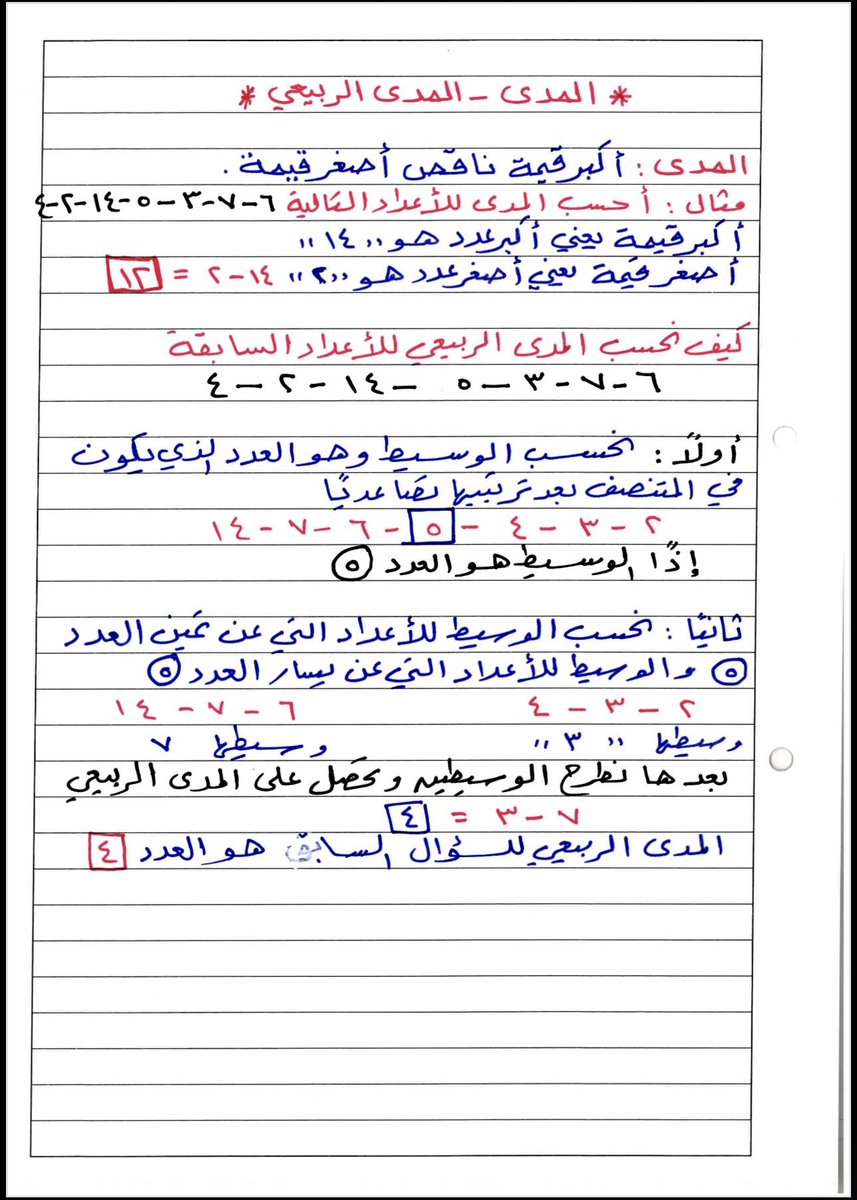 * المدى - المدى الربيعي *
المدى : أكبر قيمة ناقص أصغر قيمة .
مثال : أحسب المدى للأعداد التالية ٦-٧-٣-٥-١٤-٢-٤
أكبر قيمة يعني أكبر عدد هو ،، ١٤ ،،
أصغر قيمة يعني أصغر عدد هو ،، ٢ ،، ١٤-٢ = ١٢
كيف نحسب المدى الربيعي للأعداد السابقة
٦-٧-٣-٥-١٤-٢-٤
أولاً : نحسب الوسيط وهو العدد الذي يكون
في المتنصف بعد ترتيبها تصاعديًا
٢-٣-٤-٥-٦-٧-١٤
إذًا الوسيط هو العدد ٥
ثانيًا : نحسب الوسيط للأعداد التي عن يمين العدد
٥ والوسيط للأعداد التي عن يسار العدد ٥
٢-٣-٤ ٦-٧-١٤
وسيطها ،، ٣ ،، وسيطها ٧
بعدها نطرح الوسيطين ونحصل على المدى الربيعي
٧-٣ = ٤
المدى الربيعي للسؤال السابق هو العدد ٤